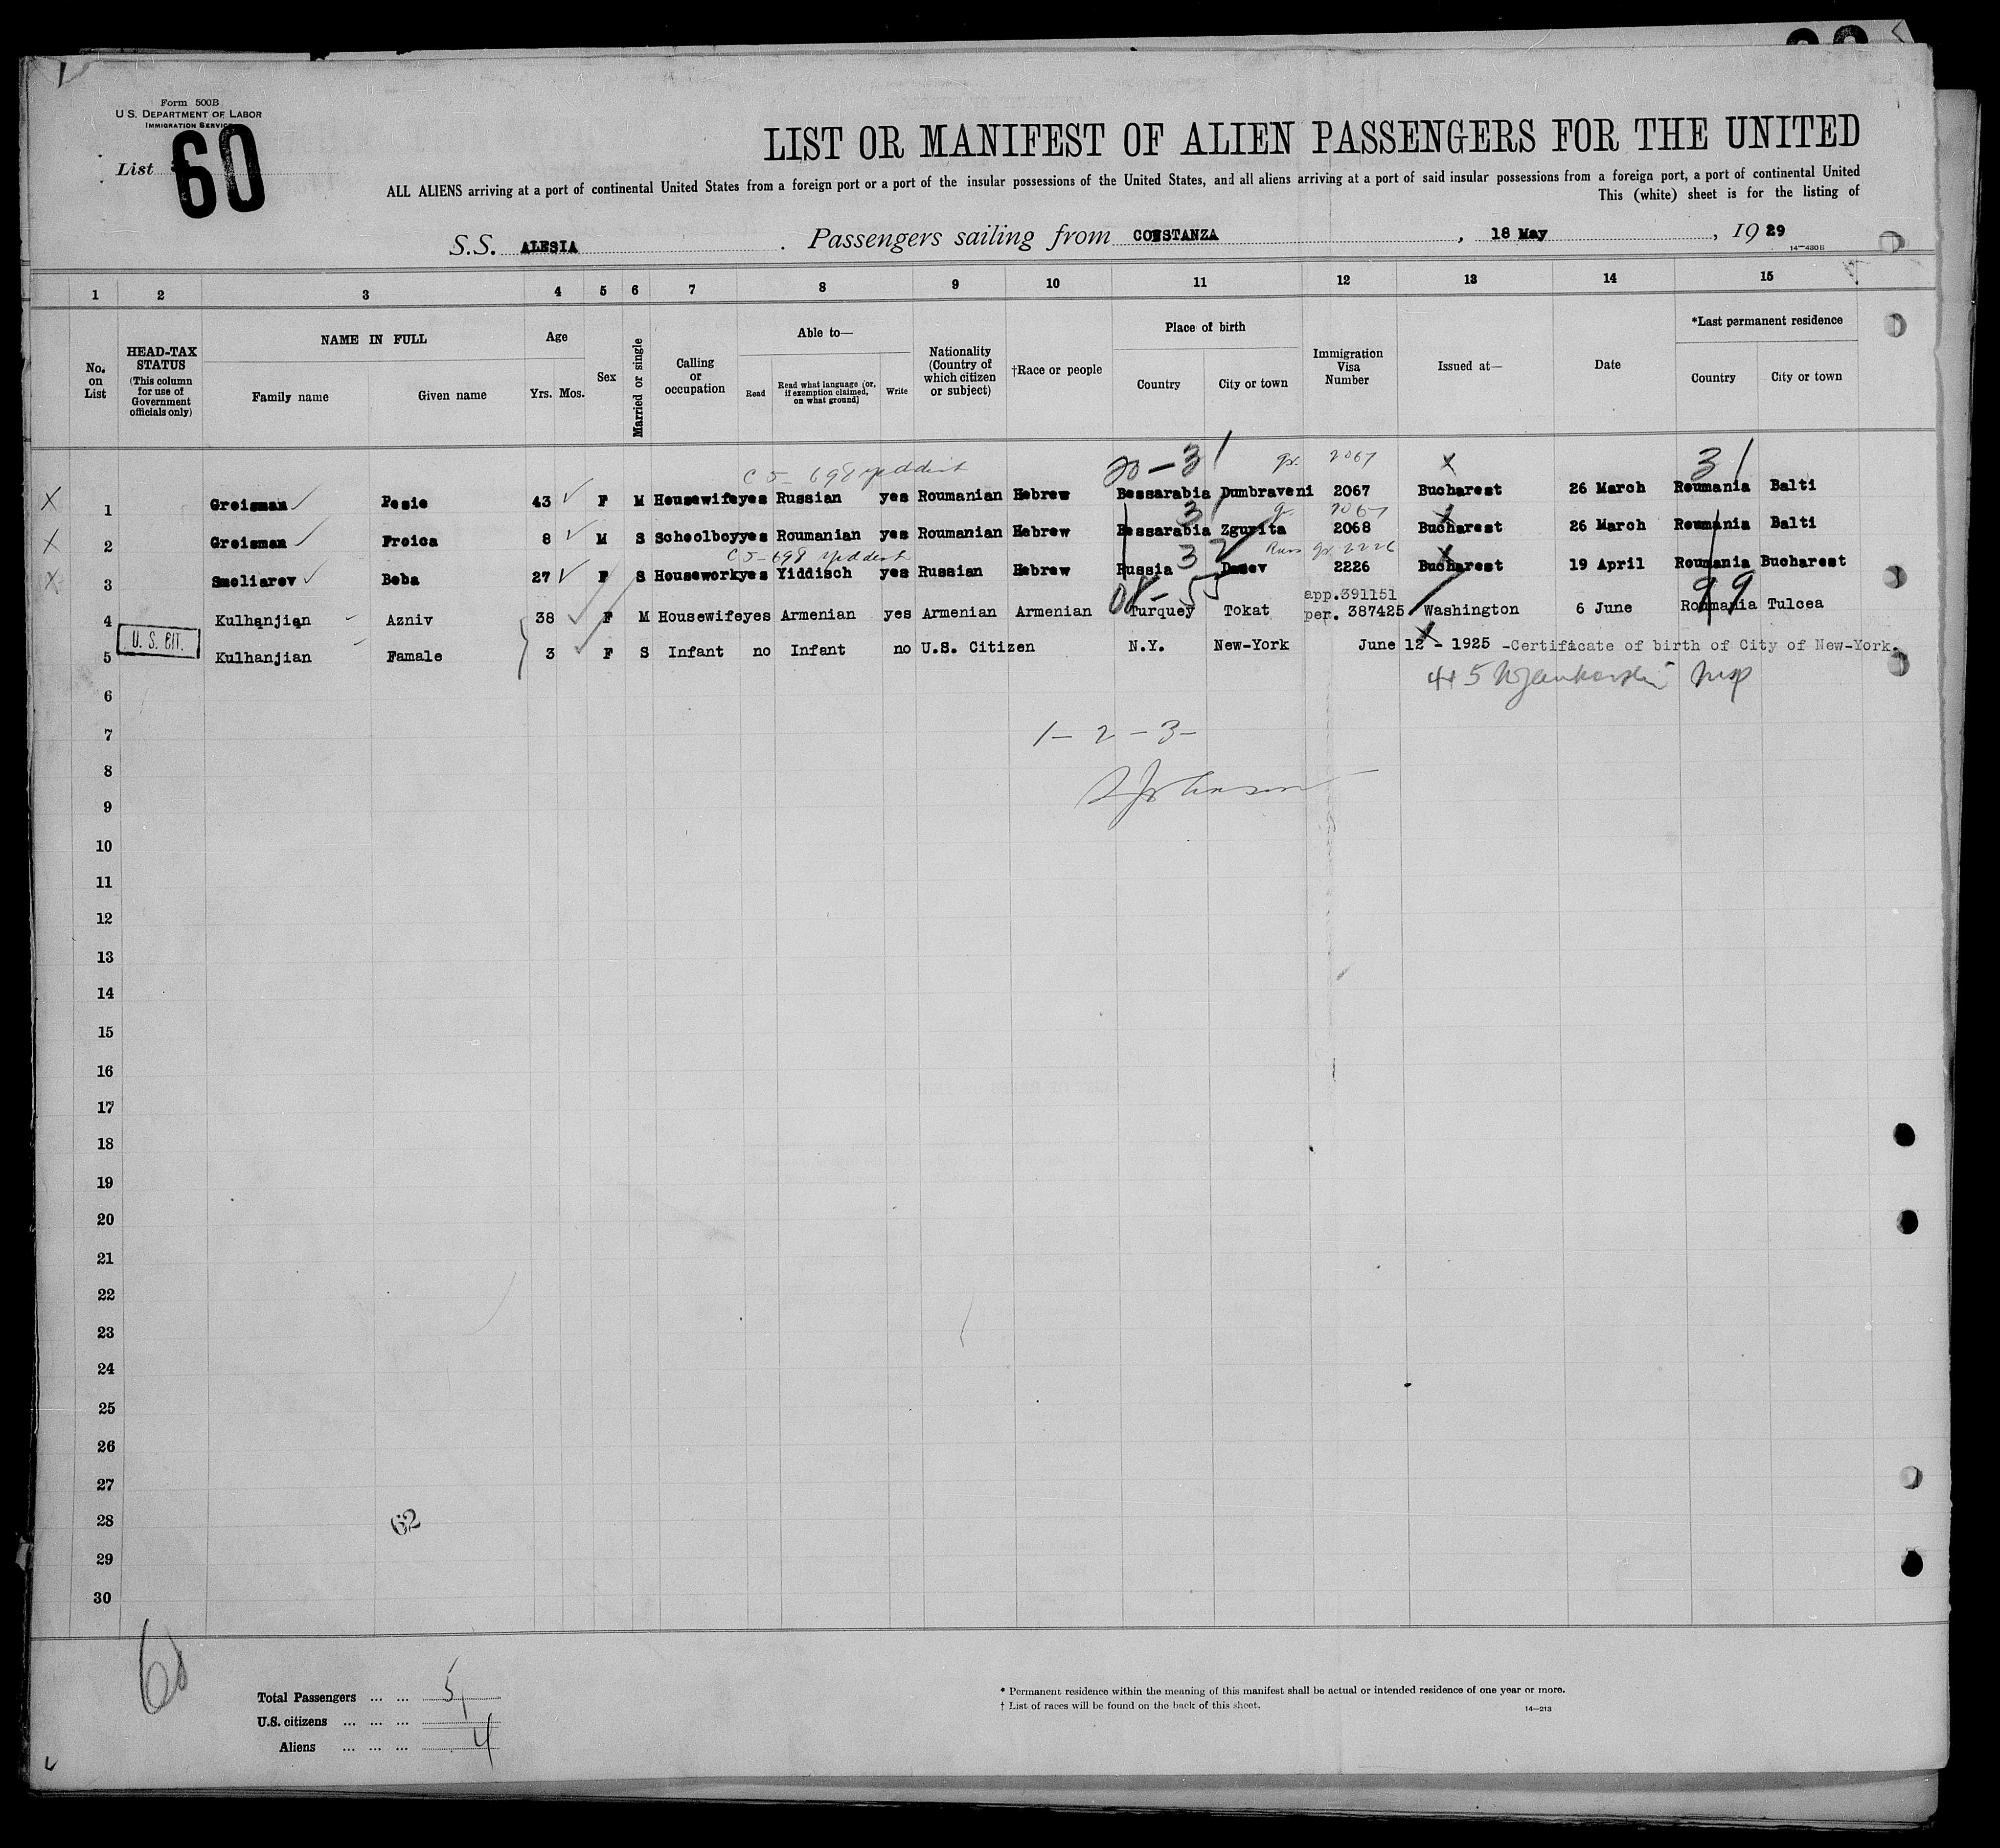 Form 500B
U.S. DEPARTMENT OF LABOR
IMMIGRATION SERVICE
List 60
LIST OR MANIFEST OF ALIEN PASSENGERS FOR THE UNITED
ALL ALIENS arriving at a port of continental United States from a foreign port or a port of the insular possessions of the United States, and all aliens arriving at a port of said insular possessions from a foreign port, a port of continental United
This (white) sheet is for the listing of
S.S. ALESIA . Passengers sailing from CONSTANZA , 18 May , 19 29
14—480B
1 2 3 4 5 6 7 8 9 10 11 12 13 14 15
No. on List
HEAD-TAX STATUS (This column for use of Government officials only)
NAME IN FULL
Family name
Given name
Age
Yrs. Mos.
Sex
Married or single
Calling or occupation
Able to—
Read
Read what language (or, if exemption claimed, on what ground)
Write
Nationality (Country of which citizen or subject)
†Race or people
Place of birth
Country
City or town
Immigration Visa Number
Issued at—
Date
*Last permanent residence
Country
City or town
C5-698 Yiddish 20-31 gr. 2067 X 31
X 1 Greisman Pesie 43 F M Housewife yes Russian yes Roumanian Hebrew Bessarabia Dumbraveni 2067 Bucharest 26 March Roumania Balti
31 gr. 2067
X 2 Greisman Froica 8 M S Schoolboy yes Roumanian yes Roumanian Hebrew Bessarabia Zgurita 2068 Bucharest 26 March Roumania Balti
C5-698 Yiddish 32 Russ gr. 2226 X
X 3 Smoliarov Beba 27 F S Housework yes Yiddisch yes Russian Hebrew Russia 2226 Bucharest 19 April Roumania Bucharest
55 app.391151 99
4 Kulhanjian Azniv 38 F M Housewife yes Armenian yes Armenian Armenian Turquey Tokat per. 387425 Washington 6 June Roumania Tulcea
U.S. CIT.
5 Kulhanjian Famale 3 F S Infant no Infant no U.S. Citizen N.Y. New-York June 12 - 1925 -Certificate of birth of City of New-York.
6
7 1 - 2 - 3 -
8
9
10
11
12
13
14
15
16
17
18
19
20
21
22
23
24
25
26
27
28 62
29
30
60
Total Passengers ... ... 5
U.S. citizens ... ... ... 1
Aliens ... ... ... 4
* Permanent residence within the meaning of this manifest shall be actual or intended residence of one year or more.
† List of races will be found on the back of this sheet.
14—213